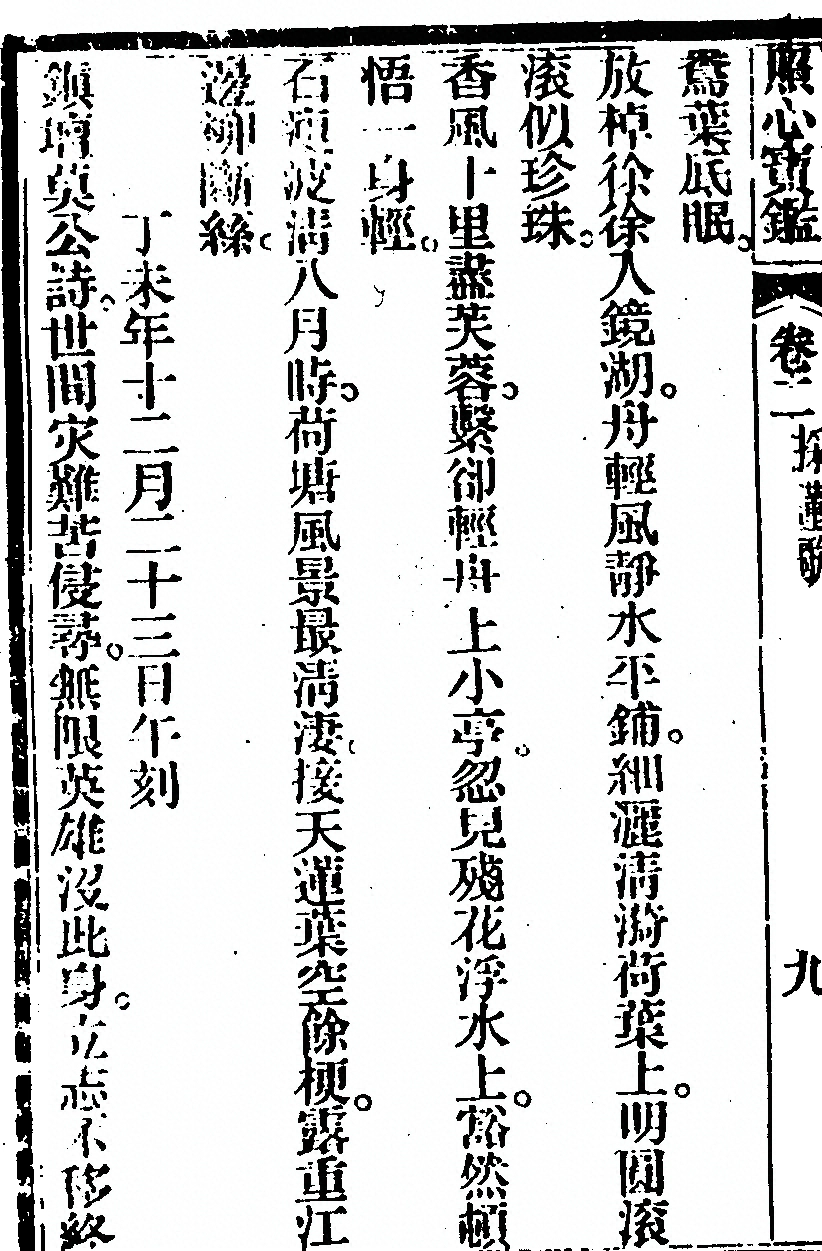 照心寶鑑 卷二 採蓮歌 九
鴦葉底眠。
放棹徐徐入鏡湖。舟輕風靜水平鋪。細灑清漪荷葉上。明圓滾
滾似珍珠。
香風十里盡芙蓉。繫卻輕舟上小亭。忽見殘花浮水上。豁然頓
悟一身輕。
石瘦波清八月時。荷塘風景最淸凄。接天蓮葉空餘梗。露重江
邊柳斷絲。
丁未年十二月二十三日午刻
鎮壇莫公詩。世間灾難苦侵尋。無限英雄沒此身。立志不移終